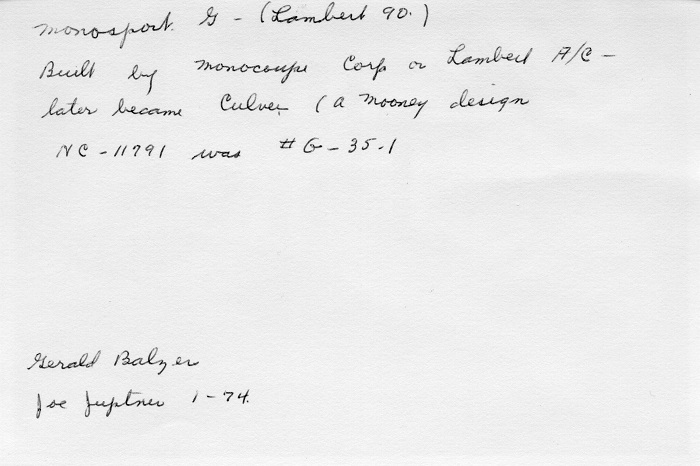 monosport G - (Lambert 90.)
Built by monocoupe Corp or Lambert A/C -
later became Culver (a mooney design
NC-11791 was #G-35-1
Gerald Balzer
Joe Juptner 1-74.